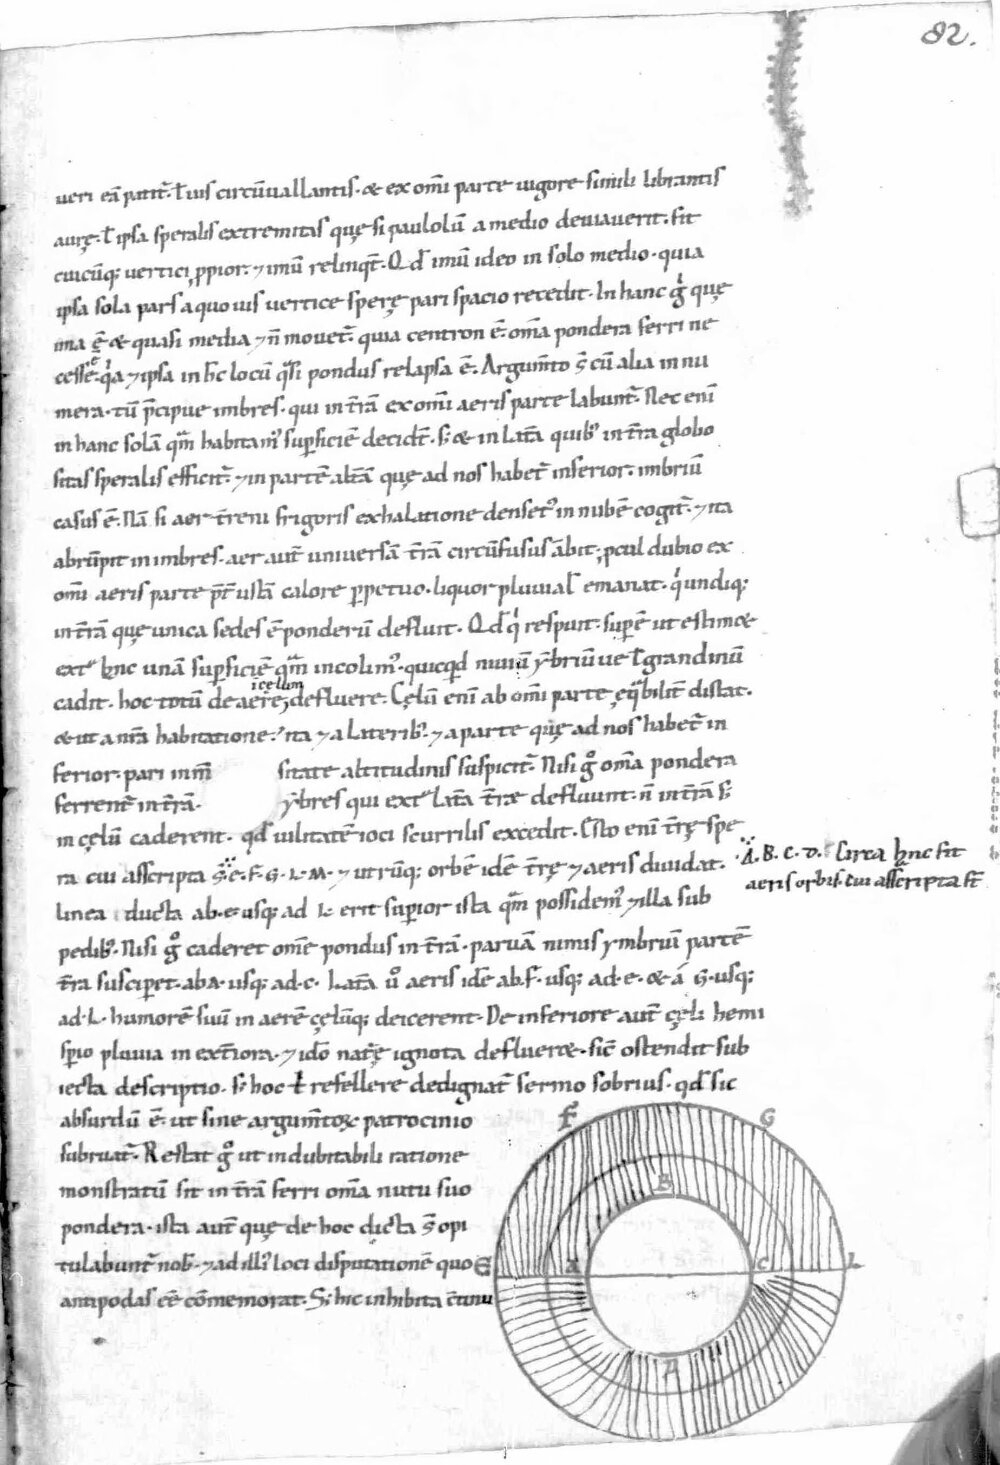 82.
ueri eā patit᷑. ł uis circūuallantis. & ex om̄i parte uigore simili librantis
aurę. ł ipsa speralis extremitas quę si paululū a medio deuiauerit. fit
cuicūq; uertici ꝓpior. ⁊ imū relinqt᷑. Qđ imū ideo in solo medio. quia
ipsa sola pars a quo uis uertice sperę pari spacio recedit. In hanc gͥ quę
ima ē & quasi media ⁊ n̄ mouet᷑. quia centron ē. om̄a pondera ferri ne
cesse ē. qͥa ⁊ ipsa in hc̄ locū qͣsi pondus relapsa ē. Argum̄to s̄ cū alia in nu
mera. tū p̄cipue imbres. qui in t̄rā ex om̄i aeris parte labunt᷑. Nec eni
in hanc solā qͣm habitam᷒ sup̱ficiē decidt̄. sꝫ & in lat̄a quib᷒ in t̄ra globo
sitas speralis efficit᷑. ⁊ in partē alt̄ā quę ad nos habet᷑ inferior. imbriū
casus ē. Nā si aer t̄reni frigoris exhalatione denset᷒ in nubē cogit᷑. ⁊ ita
abrūpit in imbres. aer aut̄ uniuersā t̄rā circūfusus ābit. ꝓcul dubio ex
om̄i aeris parte p̄t̄ ustā calore ꝑpetuo. liquor pluuial̄ emanat. qͥ undiq;
in t̄rā quę unica sedes ē ponderū defluit. Qđ qͥ respuit. sup̱ē ut estim&
extͣ hc̄ unā sup̱ficiē qͣm incolim᷒. quicqͥd niuiū ẏbriū ue ł grandinū
cadit. hoc totū de aere i celum defluere. Cęlū enī ab om̄i parte ęqͣbilit̄ distat.
& ut a nr̄a habitatione. ita ⁊ a laterib᷒. ⁊ a parte quę ad nos habet᷑ in
ferior. pari inm̄ sitate altitudinis suspicit᷑. Nisi gͦ om̄a pondera
ferrent᷑ in t̄rā. ẏbres qui extͣ lat̄a t̄ræ defluunt. n̄ in t̄rā sꝫ
in cęlū caderent. qđ uilitatē ioci scurrilis excedit. Esto enī t̄rę spe
ra cui asscripta s̄ E. F. G. L. M. ⁊ utrūq; orbē idē t̄rę ⁊ aeris diuidat.
A. B. C. D. Circa hc̄ sit
aeris orbis. cui asscripta st̄
linea ducta ab. e. usq; ad L. erit sup̱ior ista qͣm possidem᷒ ⁊ illa sub
pedib᷒. Nisi gͦ caderet om̄e pondus in t̄rā. paruā nimis ymbriū partē
t̄ra suscip̱et. ab A. usq; ad. c. Lat̄a u᷑o aeris idē ab. f. usq; ad. e. & á G. usq;
ad. L. humorē suū in aerē cęlūq; deicerent. De inferiore aut̄ cęli hemi
sp̱io pluuia in ext̄iora. ⁊ ido nat᷑ę ignota defluer&. sic̄ ostendit sub
iecta descriptio. sꝫ hoc ł refellere dedignat᷑ sermo sobrius. qđ sic
absurdū ē. ut sine argum̄toꝝ patrocinio
subruat᷑. Restat gͦ ut indubitabili ratione
monstratū sit in t̄rā ferri om̄a nutu suo
pondera. ista aut̄ quę de hoc dicta s̄ opi
tulabunt᷑ nob̄. ⁊ ad illi᷒ loci disputationē quo
antipodas eē cōmemorat. Sꝫ hic inhibita c̄tinu
F G
B
E A C L
A